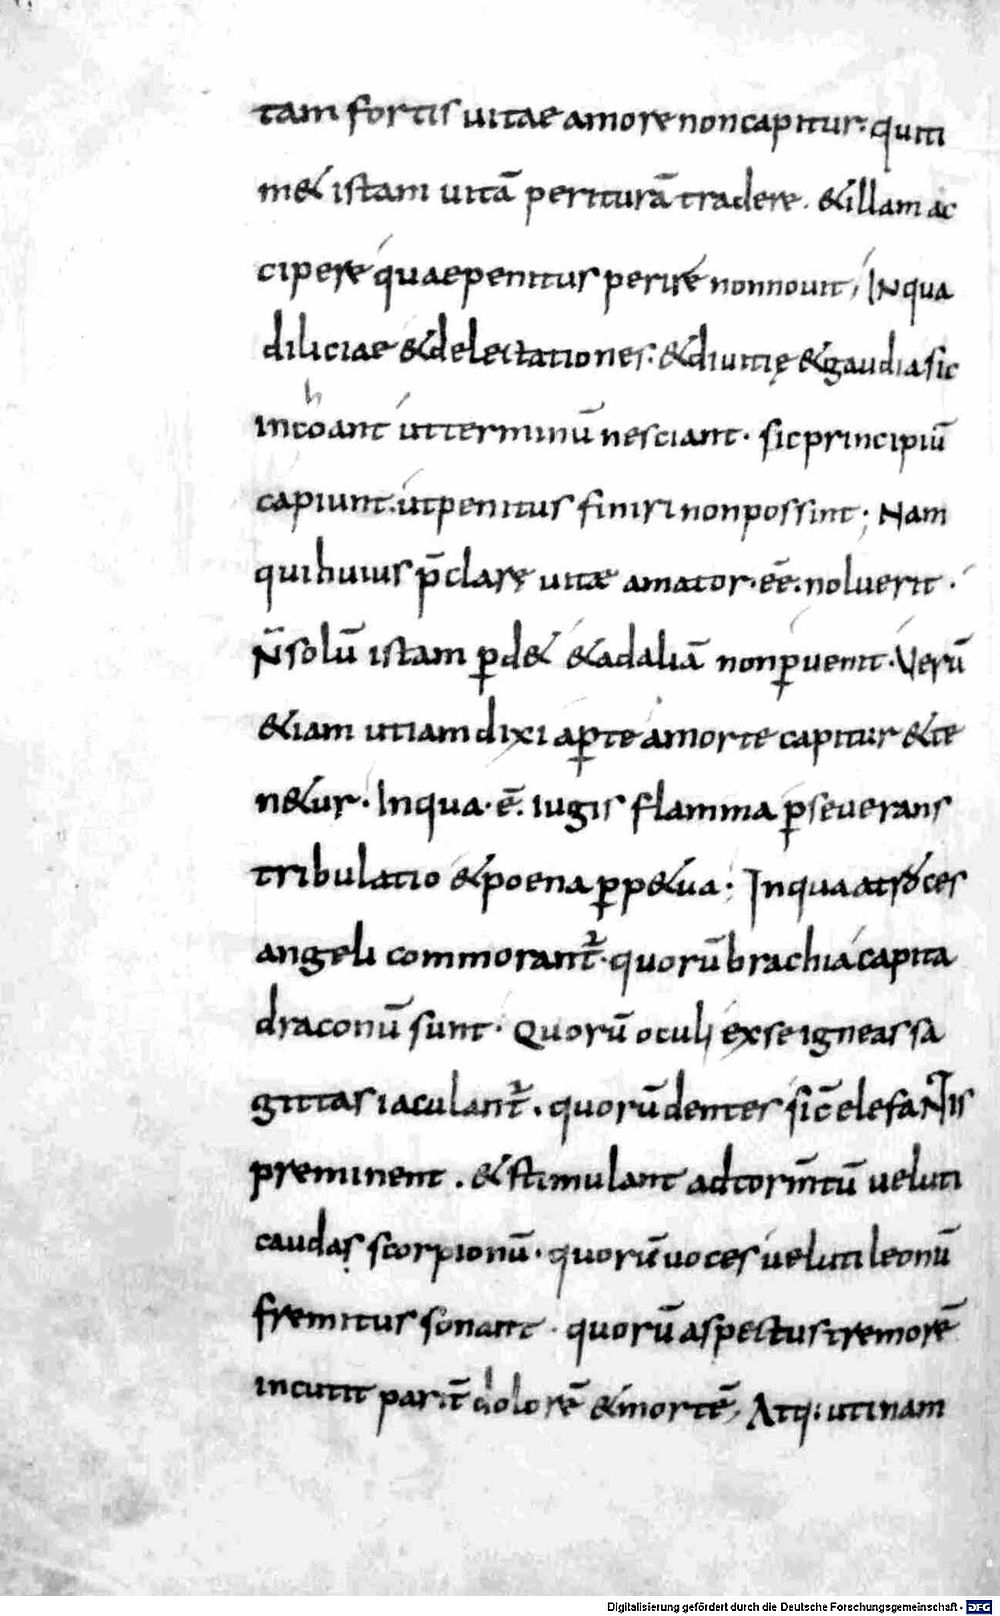 tam fortis uitae amore non capitur. qui ti
m& istam uitā periturā tradere. & illam ac
cipere quae penitus perire non nouit; In qua
diliciae & delectationes. & diuitię & gaudia sic
incohant ut terminū nesciant. sic principiū
capiunt. ut penitus finiri non possint; Nam
qui huius p̄clarę uitæ amator. eē. noluerit.
N̄ solū istam ꝑd& & ad aliā non ꝑuenit. Verū
&iam uti iam dixi aꝑte a morte capitur & te
n&ur. In qua. ē. iugis flamma ꝑseuerans
tribulatio & poena ꝑp&ua; In qua atroces
angeli commorant᷑. quorū brachia capita
draconū sunt. Quorū oculi ex se igneas sa
gittas iaculant᷑. quorū dentes sic̄ elefantis
preminent. & stimulant ad torm̄tū ueluti
caudas scorpionū. quorū uoces ueluti leonū
fremitus sonant. quorū aspectus tremorē
incutit parit̄ dolorē & mortē; Atq; utinam
Digitalisierung gefördert durch die Deutsche Forschungsgemeinschaft - DFG